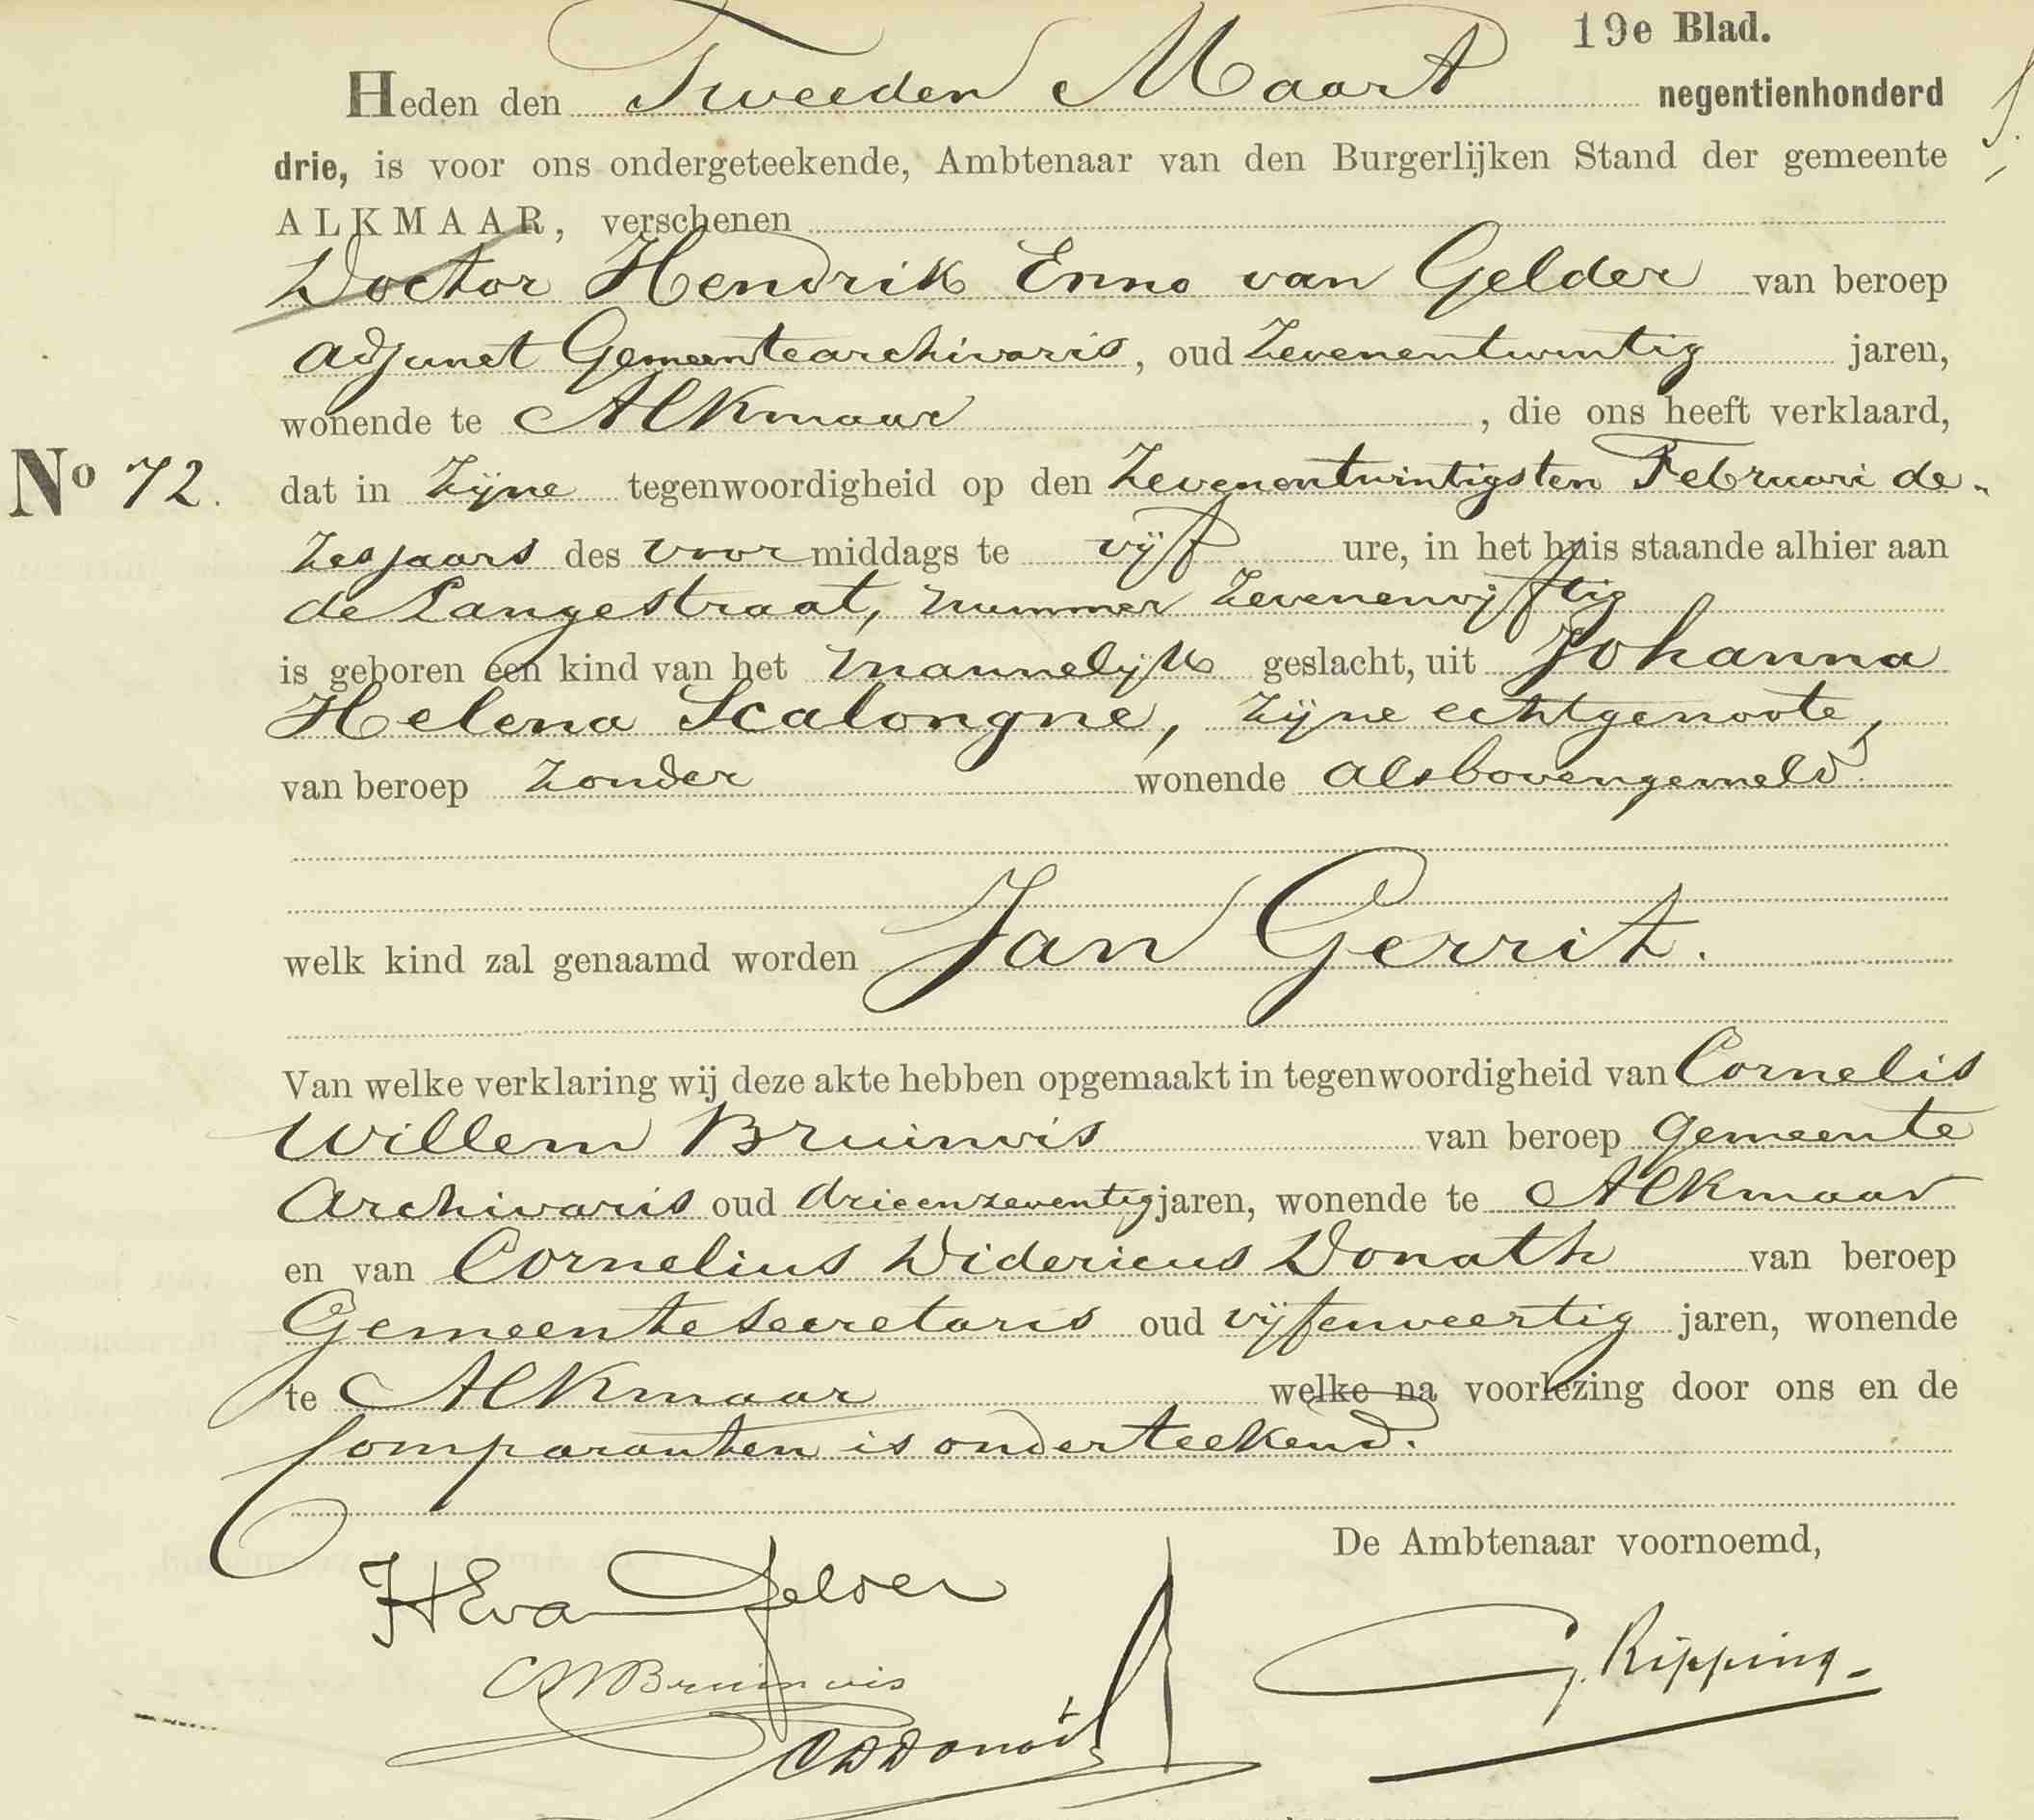 19e Blad.
Heden den Tweeden Maart negentienhonderd
drie, is voor ons ondergeteekende, Ambtenaar van den Burgerlijken Stand der gemeente
ALKMAAR, verschenen
Doctor Hendrik Enno van Gelder van beroep
adjunct Gemeentearchivaris, oud Zevenentwintig jaren,
wonende te Alkmaar, die ons heeft verklaard,
No 72. dat in Zijne tegenwoordigheid op den Zevenentwintigsten Februari de-
zes jaars des voor middags te vijf ure, in het huis staande alhier aan
de Langestraat, nummer Zevenenvijftig
is geboren een kind van het mannelijk geslacht, uit Johanna
Helena Scalongne, Zijne echtgenoote,
van beroep Zonder wonende alsbovengemeld.
welk kind zal genaamd worden Jan Gerrit.
Van welke verklaring wij deze akte hebben opgemaakt in tegenwoordigheid van Cornelis
Willem Bruinvis van beroep Gemeente
Archivaris oud drieenzeventig jaren, wonende te Alkmaar
en van Cornelius Didericus Donath van beroep
Gemeentesecretaris oud vijfenveertig jaren, wonende
te Alkmaar welke na voorlezing door ons en de
Comparanten is onderteekend.
De Ambtenaar voornoemd,
HEvanGelder
CWBruinvis
G. Ripping
CDDonath